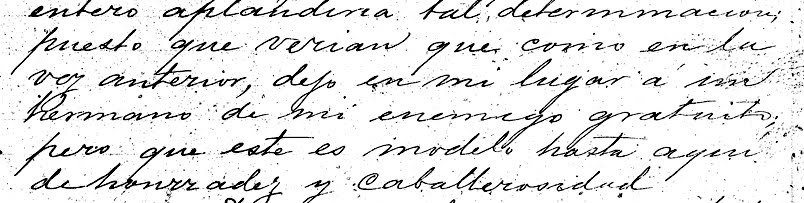 entero aplaudiria tal determinacion;
puesto que verian que como en la
vez anterior, dejo en mi lugar á un
hermano de mi enemigo gratuito,
pero que este es modelo hasta aqui
de honrradez y caballerosidad